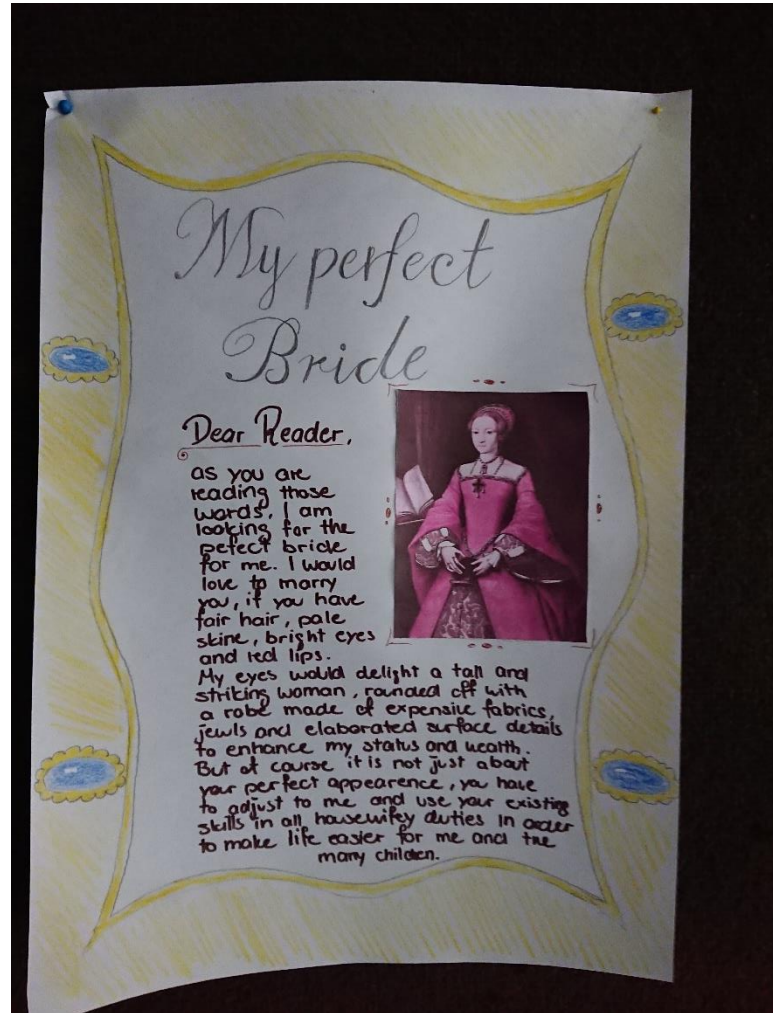 My perfect
Bride
Dear Reader,
as you are
reading those
words, I am
looking for the
pefect bride
for me. I would
love to marry
you, if you have
fair hair, pale
skine, bright eyes
and red lips.
My eyes would delight a tall and
striking woman, rounded off with
a robe made of expensive fabrics,
jewls and elaborated surface details
to enhance my status and wealth.
But of course it is not just about
your perfect appearence, you have
to adjust to me and use your existing
skills in all housewifey duties in order
to make life easier for me and the
many children.